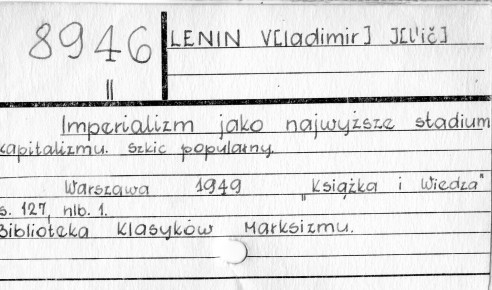 8946
II
LENIN V[ladimir] J[l'ič]
Imperializm jako najwyższe stadium
kapitalizmu. Szkic popularny.
Warszawa 1949 "Książka i Wiedza"
s. 127, nlb. 1.
Biblioteka Klasyków Marksizmu.